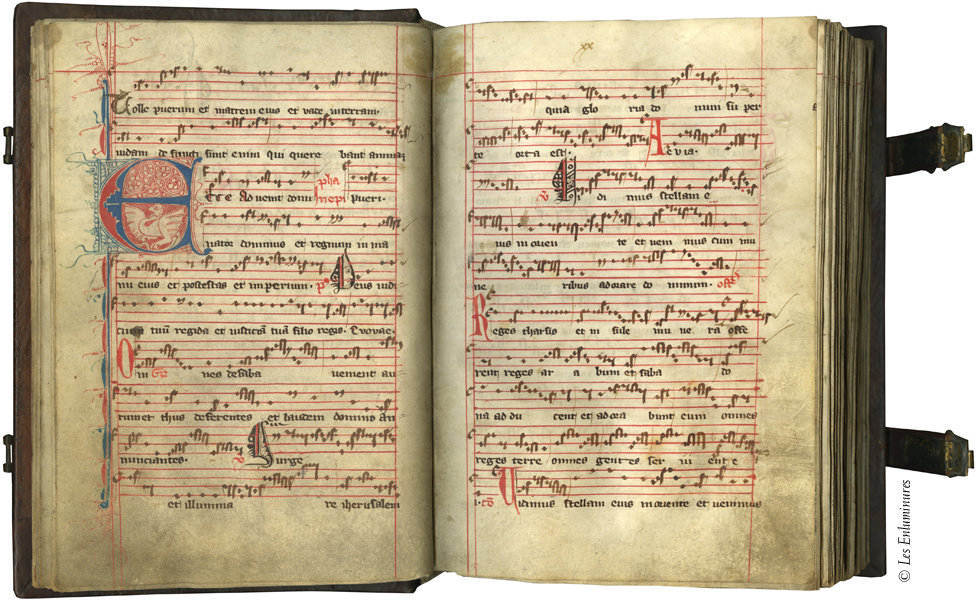 Tolle puerum et matrem eius et vade in terram
iudam defuncti sunt enim qui quere bant animam
Ecce Advenit domi Epha niepi pueri
nator dominus et regnum in ma
nu eius et potestas et imperium. ps Deus iudi
cium tuum regi da et iusticiam tuam filio regis. Euouae.
Om Gr nes de saba venient au
rum et thus deferentes et laudem domino an
nunciantes. V Surge
et illumina re iherusalem
xx
quia glo ria do mini su per
te orta est. Aevia.
V Vi di mus stellam e
ius in orien te et veni mus cum mu
ne ribus adorare do minum. offer
Reges tharsis et in sule mu ne ra offe
rent reges ar a bum et saba do
na ad du cent et adora bunt eum omnes
reges terre omnes gentes ser vi ent e
i. co Vidimus stellam eius in oriente et venimus
© Les Enluminures